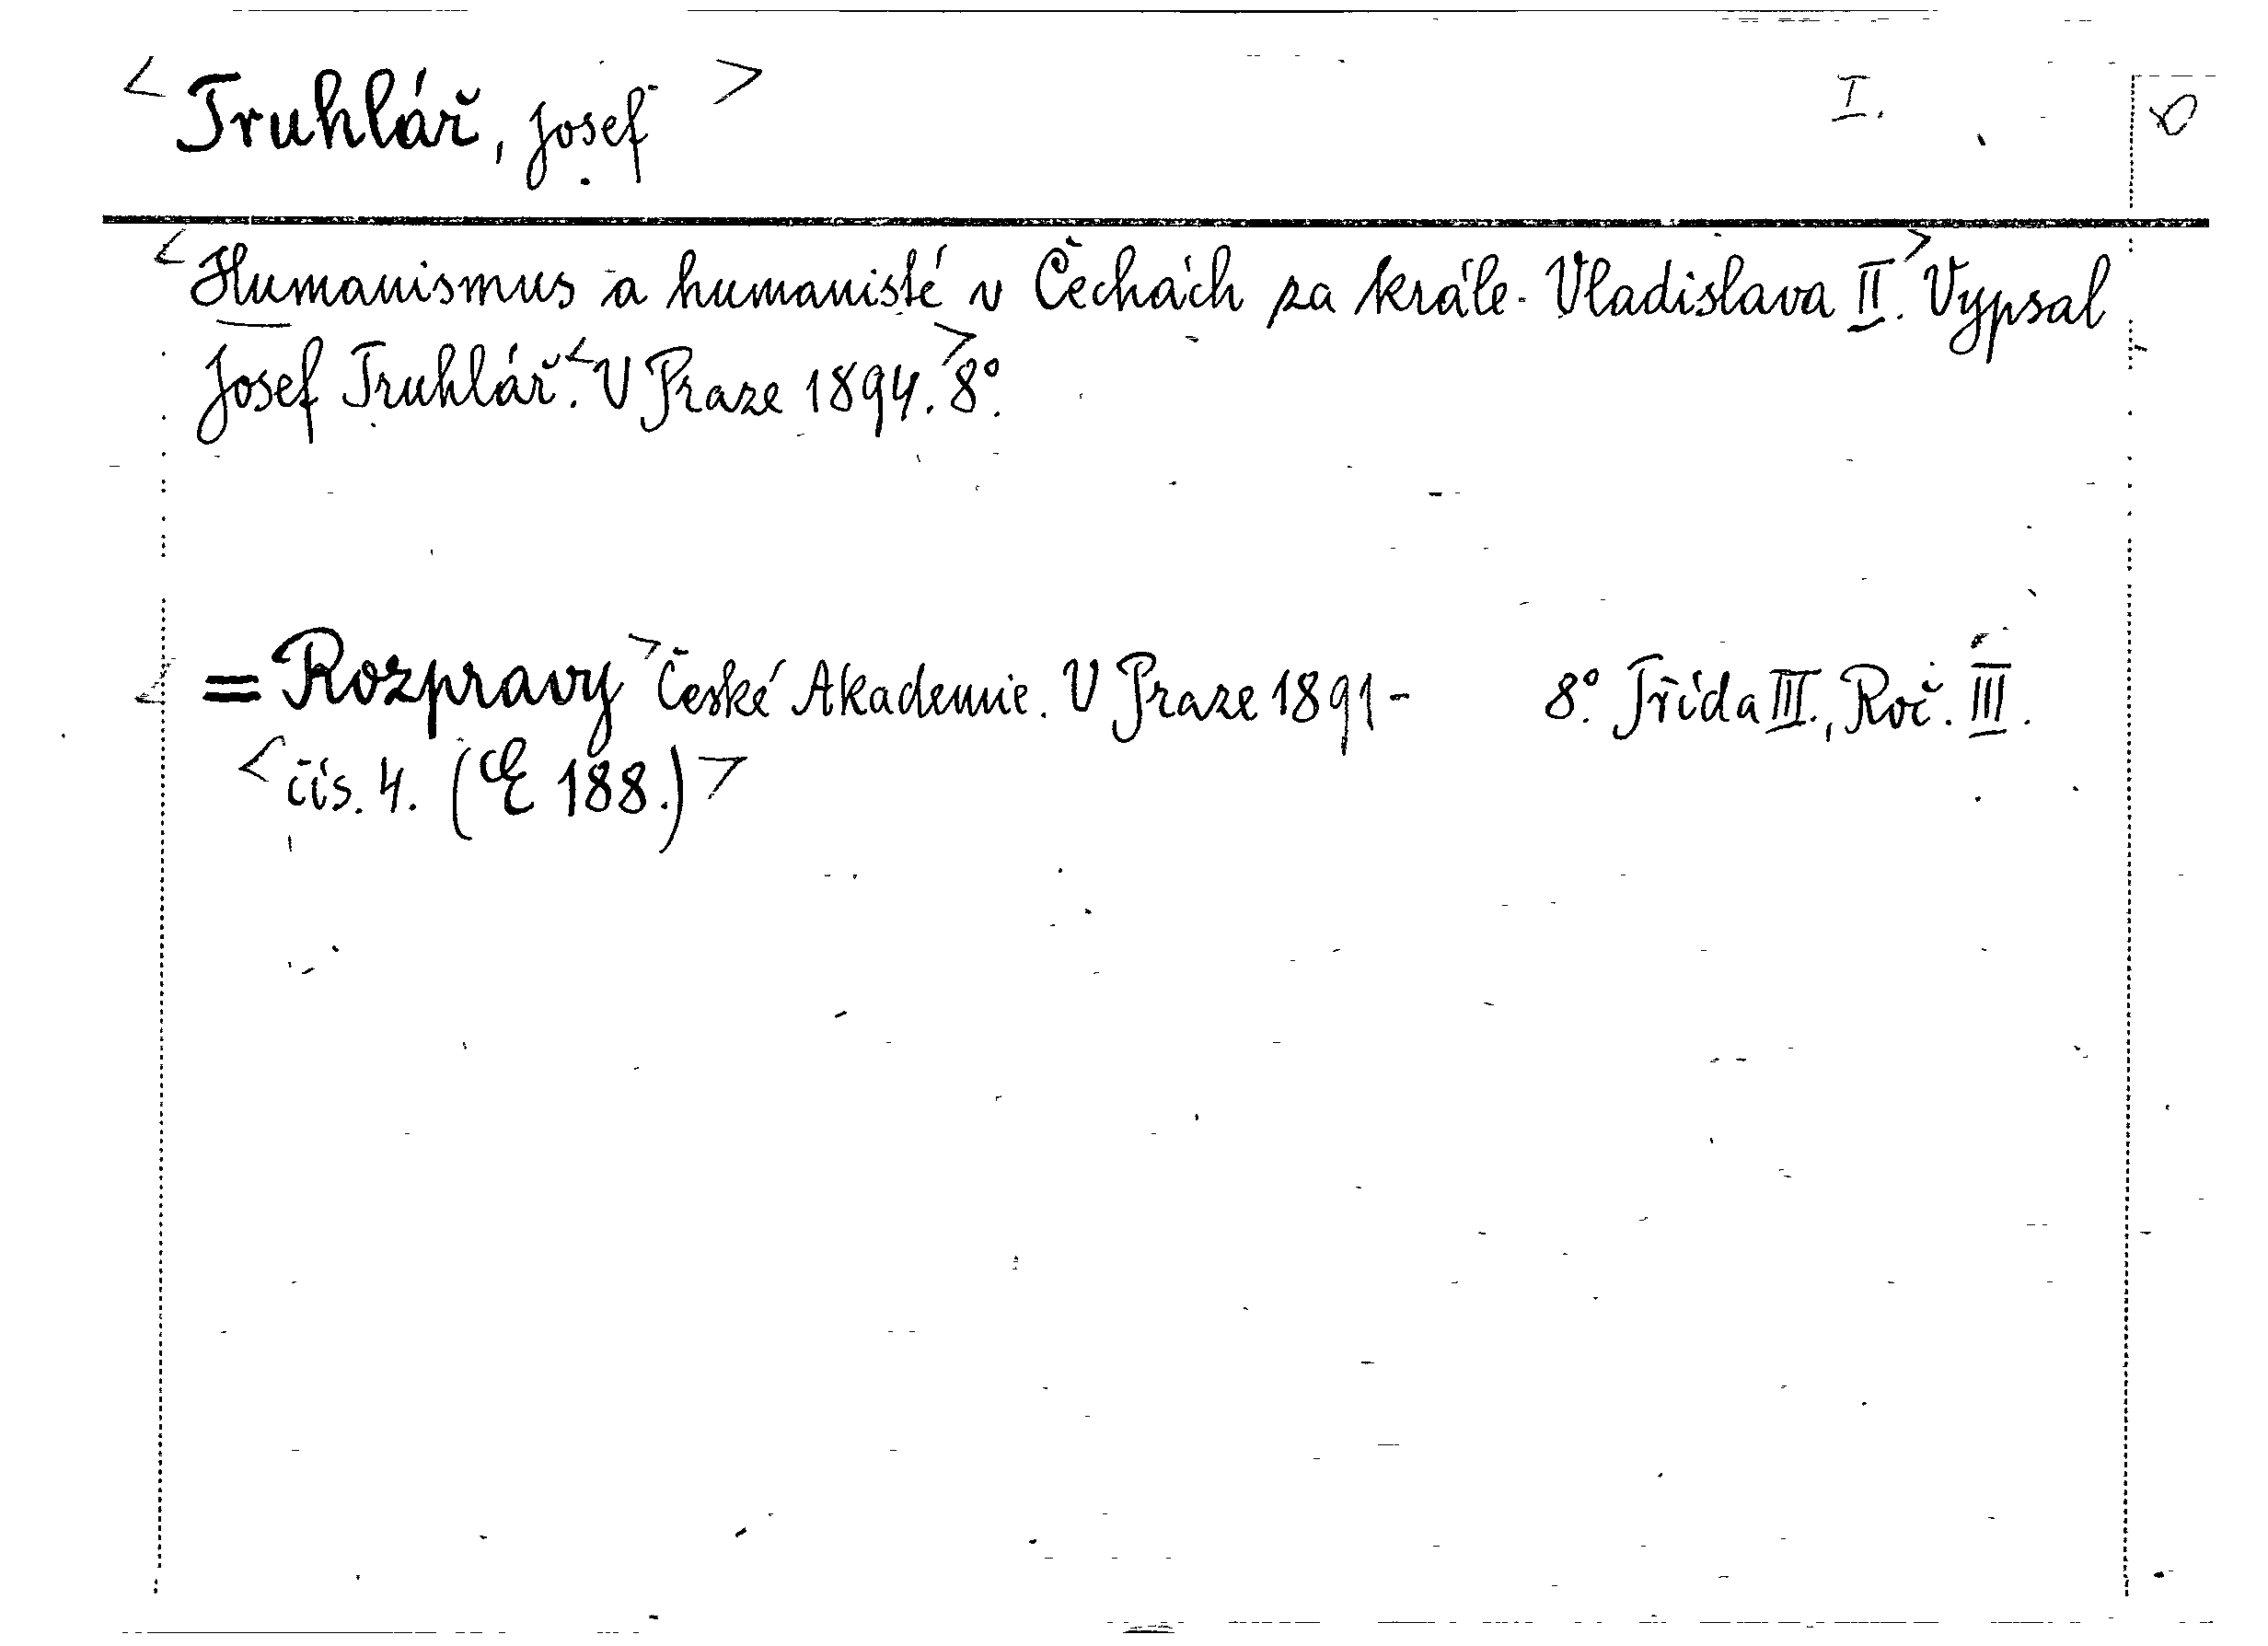 <Truhlář, Josef> I.
<Humanismus a humanisté v Čechách za krále Vladislava II.> Vypsal
Josef Truhlář.<V Praze 1894.>8°.
<=Rozpravy> České Akademie. V Praze 1891- 8°. Třída III., Roč. III.
<čís. 4. (E 188.)>